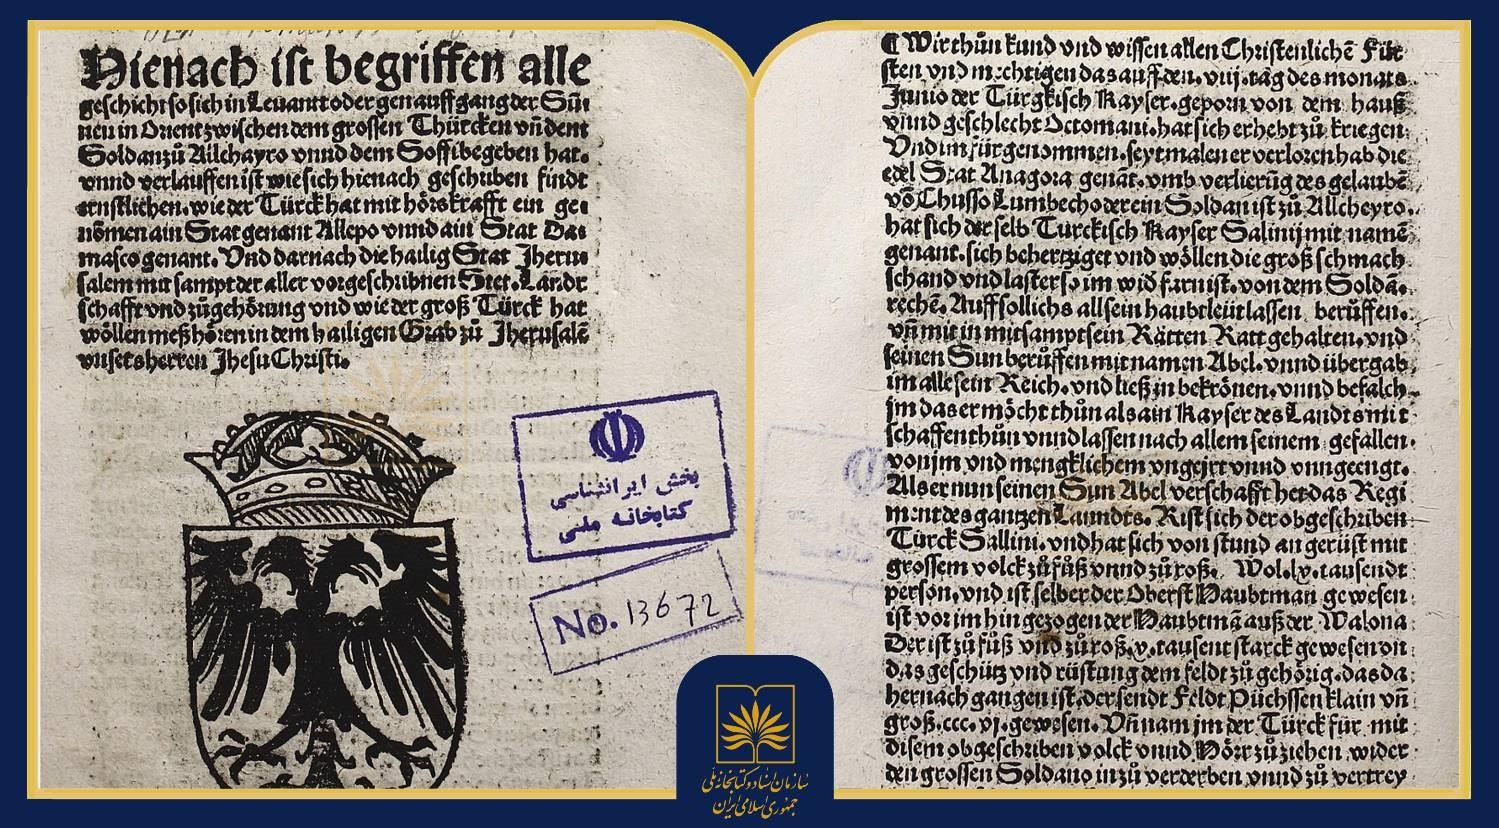 Hienach ist begriffen alle
geschicht so sich in Leuantt oder gen auffgang der Sũ⸗
nen in Orient zwischen dem grossen Thürcken vñ dem
Soldan zů Allchayro vnnd dem Soffi begeben hat.
vnnd verlauffen ist wie sich hienach geschriben findt
ernstlichen. wie der Türck hat mit hörskrafft ein ge⸗
nomen ain Stat genant Allepo vnnd ain Stat Da⸗
masco genant. Vnd darnach die hailig Stat Jheru⸗
salem mit sampt der aller vorgeschribnen Stet. Landt
schafft vnd zůgehörung vnd wie der groß Türck hat
wöllen meß hören in dem hailigen Grab zů Jherusalẽ
vnsers herren Jhesu Christi.
بخش ایرانشناسی
کتابخانه ملی
No. 13672
¶ Wir thůn kund vnd wissen allen Christenlichẽ Für
sten vnd mechtigen das auff den. viij. tag des monats
Junio der Türgkisch Kayser. geporn von dem hauß
vnnd geschlecht Octomani. hat sich erhebt zů kriegen
Vnd im fürgenommen. seytmalen er verloren hab die
edel Stat Anagora genãt. vmb verlierũg des gelaubẽ
võ Chusso Lumbecho der ein Soldan ist zů Allcheyro.
hat sich der selb Türckisch Kayser Salinij mit namẽ
genant. sich behertziget vnd wöllen die groß schmach
schand vnd laster so im widerfarn ist. von dem Soldã.
rechẽ. Auff sollichs all sein haubtleüt lassen berůffen.
vñ mit in mitsampt sein Rätten Ratt gehalten. vnd
seinen Sun berůffen mit namen Abel. vnnd übergab
im alle sein Reich. vnd ließ jn bekrönen. vnnd befalch
jm das er möcht thůn als ain Kayser des Landts mit
schaffen thůn vnnd lassen nach allem seinem gefallen.
von jm vnd mengklichem vngejrt vnnd vnngeengt.
Als er nun seinen Sun Abel verschafft het das Regi
ment des gantzen Lanndts. Rist sich der obgeschriben
Türck Sallini. vnd hat sich von stund an gerüst mit
grossem volck zů fůß vnnd zů roß. Wol. lv. tausendt
person. vnd ist selber der Oberst Haubtman gewesen
ist vor im hin gezogen der Haubtmã auß der Walona
Der ist zů fůß vnd zů roß. v. tausent starck gewesen on
das geschütz vnd rüstung dem feldt zů gehörig. das da
hernach gangen ist. der sendt Feldt Püchssen klain vñ
groß. ccc. vj. gewesen. Vñ nam jm der Türck für mit
disem obgeschriben volck vnnd Hörr zů ziehen wider
den grossen Soldano in zů verderben vnnd zů vertrey
سازمان اسناد و کتابخانه ملی
جمهوری اسلامی ایران